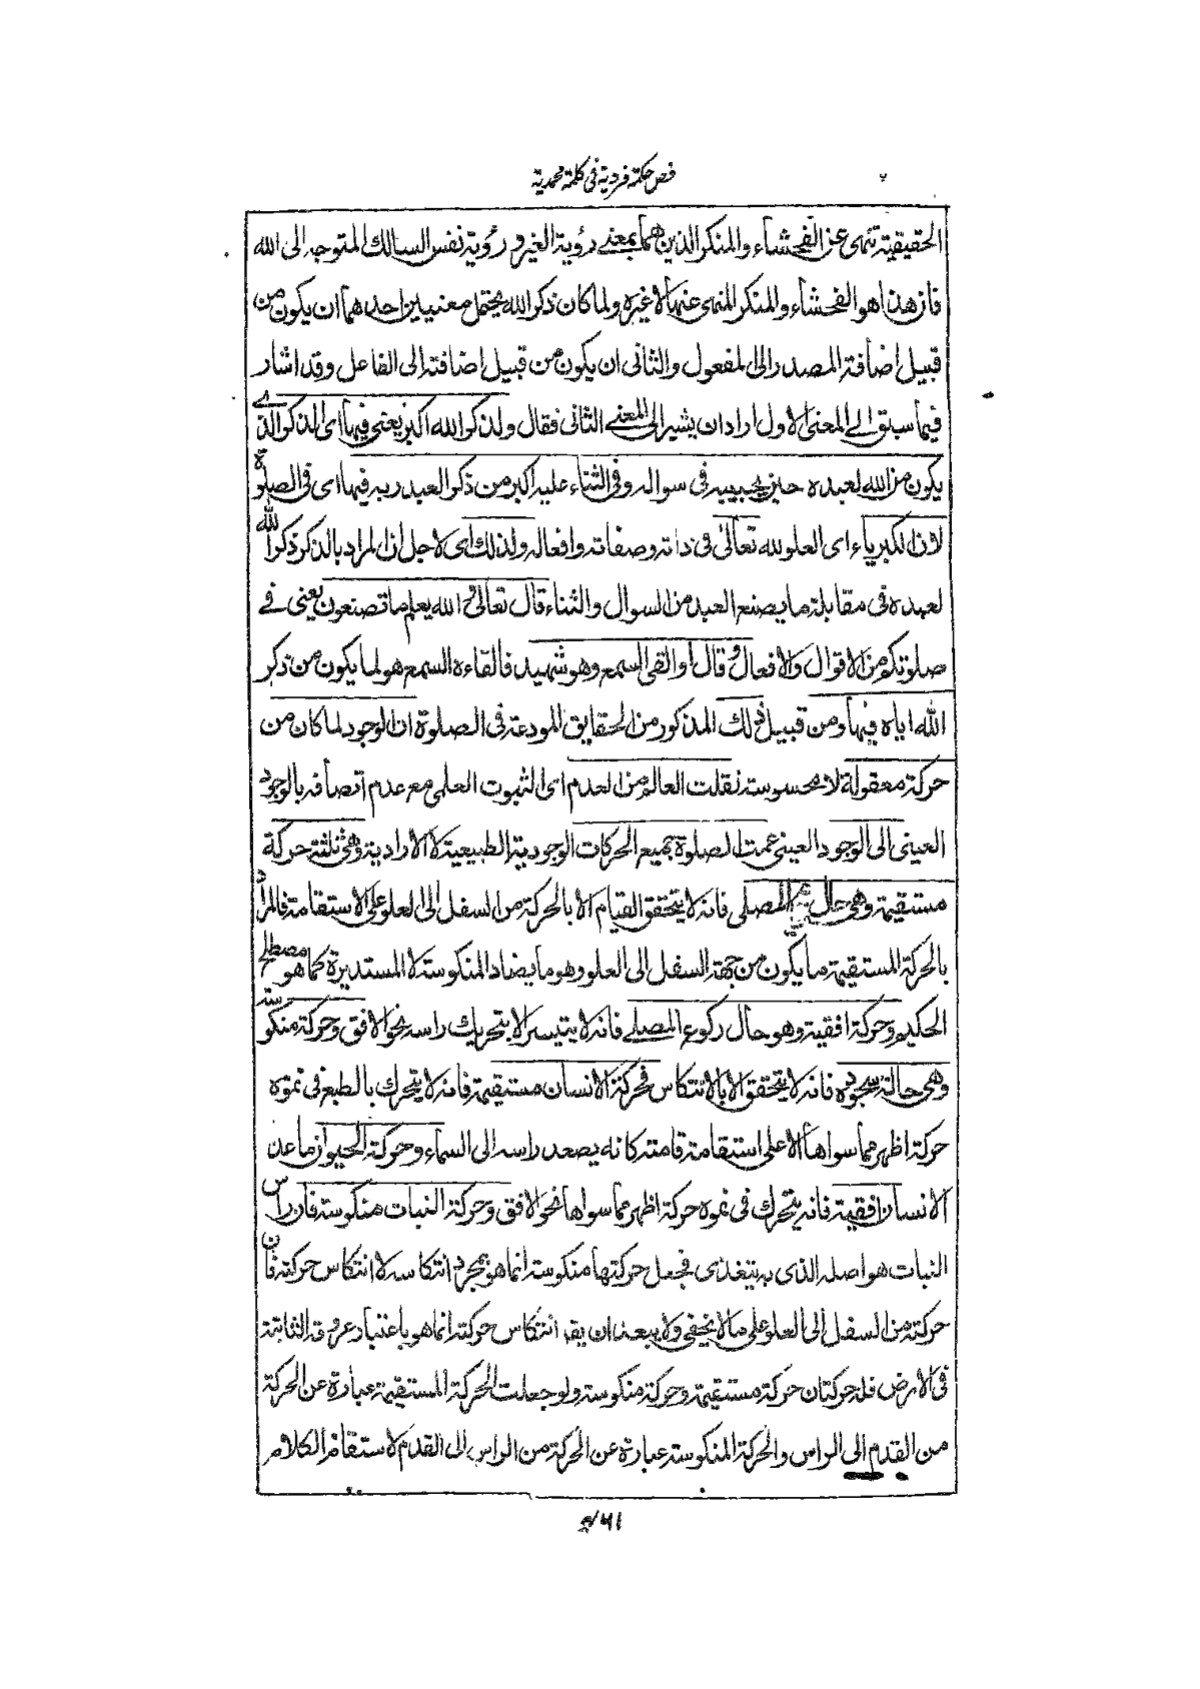 فص حكمة فردية فى كلمة محمدية
الحقيقية تنهى عن الفحشاء والمنكر الذين هما بمعنى رؤية الغير و رؤية نفس السالك المتوجه الى الله
فان هذا هو الفحشاء والمنكر المنهى عنهما لا غيره ولما كان ذكر الله يحتمل معنيين احدهما ان يكون من
قبيل اضافة المصدر الى المفعول والثانى ان يكون من قبيل اضافته الى الفاعل وقد اشار
فيما سبق الى المعنى الاول اراد ان يشير الى المعنى الثانى فقال ولذكر الله اكبر يعنى فيها اى الذكر الذى
يكون من الله لعبده حين يجيبه فى سواله وفى الثناء عليه اكبر من ذكر العبد ربه فيها اى فى الصلوة
لان الكبرياء اى العلو لله تعالى فى ذاته وصفاته وافعاله ولذلك اى لاجل ان المراد بالذكر ذكر الله
لعبده فى مقابلة ما يصنع العبد من السوال والثناء قال تعالى والله يعلم ما تصنعون يعنى فى
صلوتكم من الاقوال والافعال وقال او القى السمع وهو شهيد فالقاءه السمع هو لما يكون من ذكر
الله اياه فيها ومن قبيل ذلك المذكور من الحقايق المودعة فى الصلوة ان الوجود لما كان من
حركة معقولة لا محسوسة نقلت العالم من العدم اى الثبوت العلمى مع عدم اتصافه بالوجود
العينى الى الوجود العينى عمت الصلوة جميع الحركات الوجودية الطبيعية لا الارادية وهى ثلثة حركة
مستقيمة وهى حال المصلى فانه لا يتحقق القيام الا بالحركة من السفل الى العلو على الاستقامة فالمراد
بالحركة المستقيمة ما يكون من جهة السفل الى العلو وهو ما يضاد المنكوسة لا المستديرة كما هو مصطلح
الحكيم وحركة افقية وهو حال ركوع المصلى فانه لا يتيسر الا بتحريك راسه نحو الافق وحركة منكوسة
وهى حالة سجوده فانه لا يتحقق الا بالانتكاس فحركة الانسان مستقيمة فانه لا يتحرك بالطبع فى نموه
حركة اظهر مما سواها الا على استقامة قامته كانه يصعد راسه الى السماء وحركة الحيوان ما عدا
الانسان افقية فانه يتحرك فى نموه حركة اظهر مما سواها نحو الافق وحركة النبات منكوسة فان راس
النبات هو اصله الذى به يتغذى فجعل حركتها منكوسة انما هو بمجرد انتكاسه لا انتكاس حركته فان
حركته من السفل الى العلو على ما لا يخفى ولا يبعد ان يقد انتكاس حركته انما هو باعتبار عروقه الثابتة
فى الارض فله حركتان حركة مستقيمة وحركة منكوسة ولو جعلت الحركة المستقيمة عبارة عن الحركة
من القدم الى الراس والحركة المنكوسة عبارة عن الحركة من الراس الى القدم لاستقام الكلام